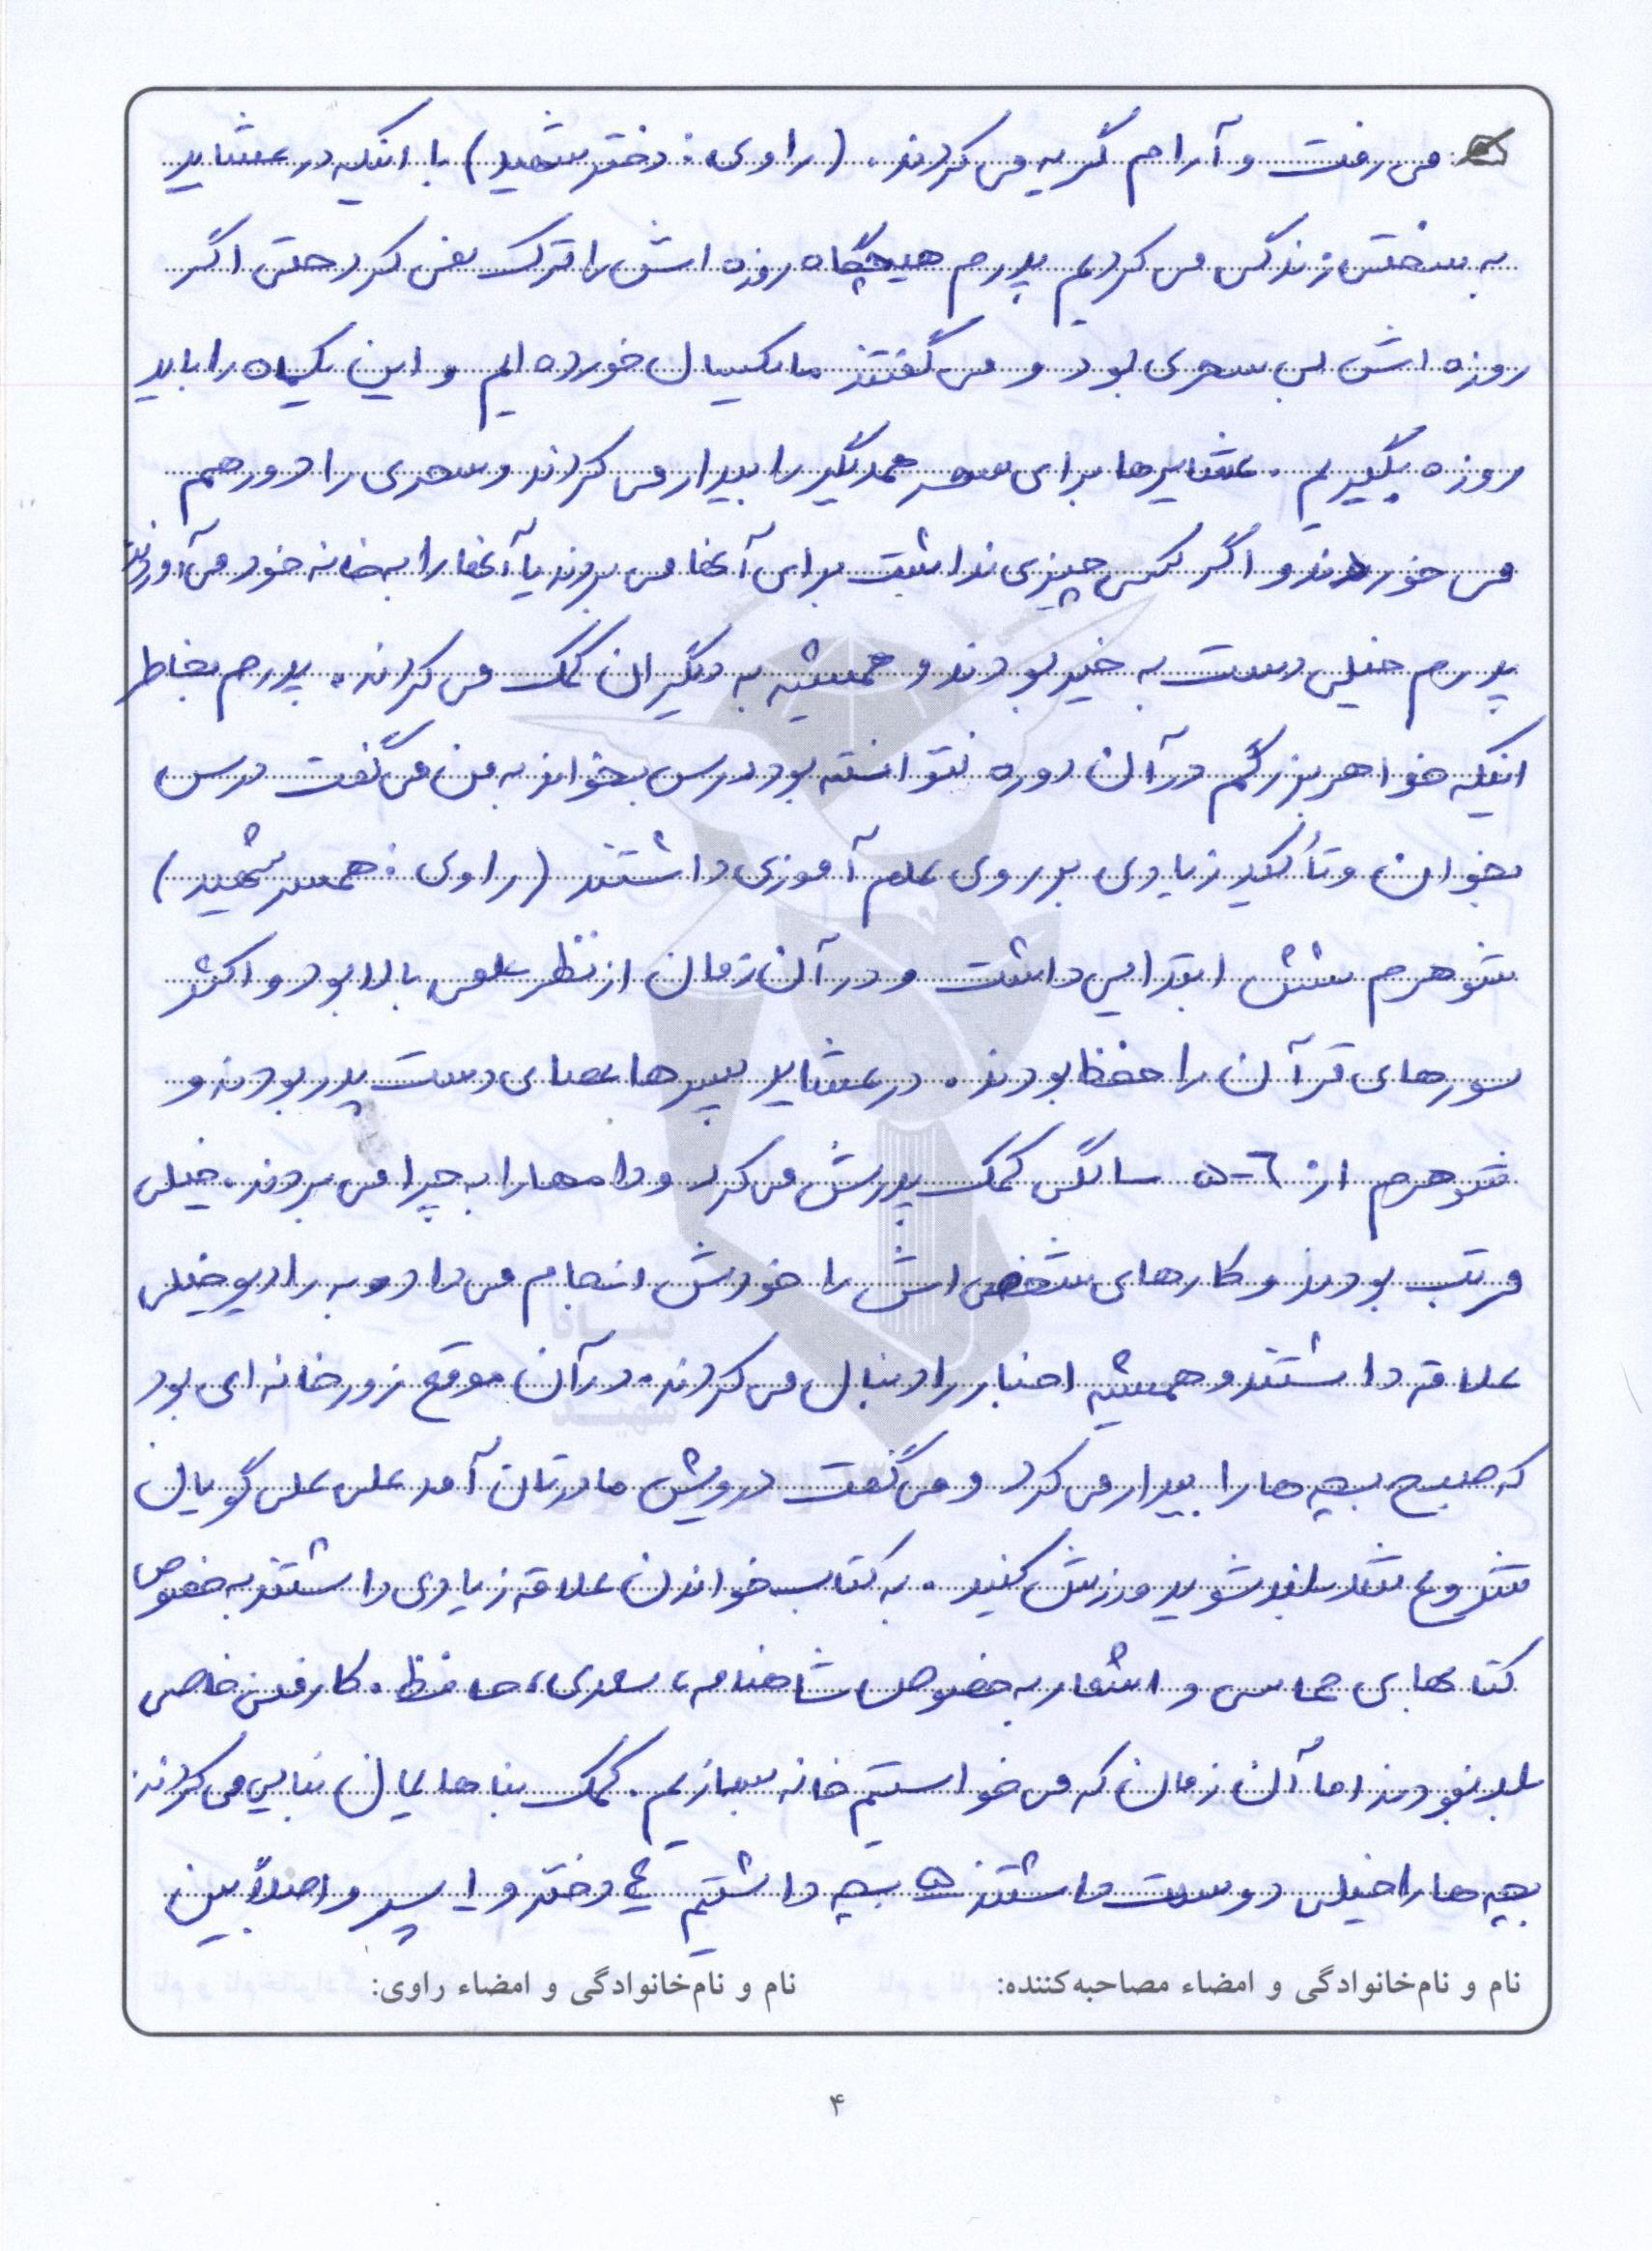 می رفت و آرام گریه می کردند. (راوی: دختر شهید) با اینکه در عشایر
به سختی زندگی می کردیم پدرم هیچگاه روزه اش را ترک نمی کرد حتی اگر
روزه اش بی سحری بود و می گفتند ما یکسال خورده ایم و این یکماه را باید
روزه بگیریم. عشایرها برای سحر همدیگر را بیدار می کردند و سحری را دور هم
می خوردند و اگر کسی چیزی نداشت برای آنها می بردند یا آنها را به خانه خود می آوردند
پدرم خیلی دست به خیر بودند و همیشه به دیگران کمک می کردند. پدرم بخاطر
اینکه خواهر بزرگم در آن دوره نتوانسته بود درس بخواند به من می گفت درس
بخوان و تأکید زیادی بر روی علم آموزی داشتند (راوی: همسر شهید)
شوهرم شش ابتدایی داشت و در آن زمان از نظر علمی بالا بود و اکثر
سورهای قرآن را حفظ بودند. در عشایر پسرها عصای دست پدر بودند و
شوهرم از ۶-۵ سالگی کمک پدرش می کرد و دامها را به چرا می بردند. خیلی
مرتب بودند و کارهای شخصی اش را خودش انجام می داد و به رادیو خیلی
علاقه داشتند و همیشه اخبار را دنبال می کردند. در آن موقع زورخانه ای بود
که صبح بچه ها را بیدار می کرد و می گفت درویش مادرتان آمد علی علی گویان
شروع شد بلند شوید ورزش کنید. به کتاب خواندن علاقه زیادی داشتند به خصوص
کتابهای حماسی و اشعار به خصوص شاهنامه، سعدی، حافظ. کار فنی خاصی
بلد نبودند اما آن زمان که می خواستیم خانه بسازیم. کمک بناها یمان بنایی می کردند.
بچه ها را خیلی دوست داشتند ۵ بچه داشتیم ۴ دختر و ۱ پسر و اصلاً بین
نام و نام‌خانوادگی و امضاء مصاحبه‌کننده: نام و نام‌خانوادگی و امضاء راوی:
۴